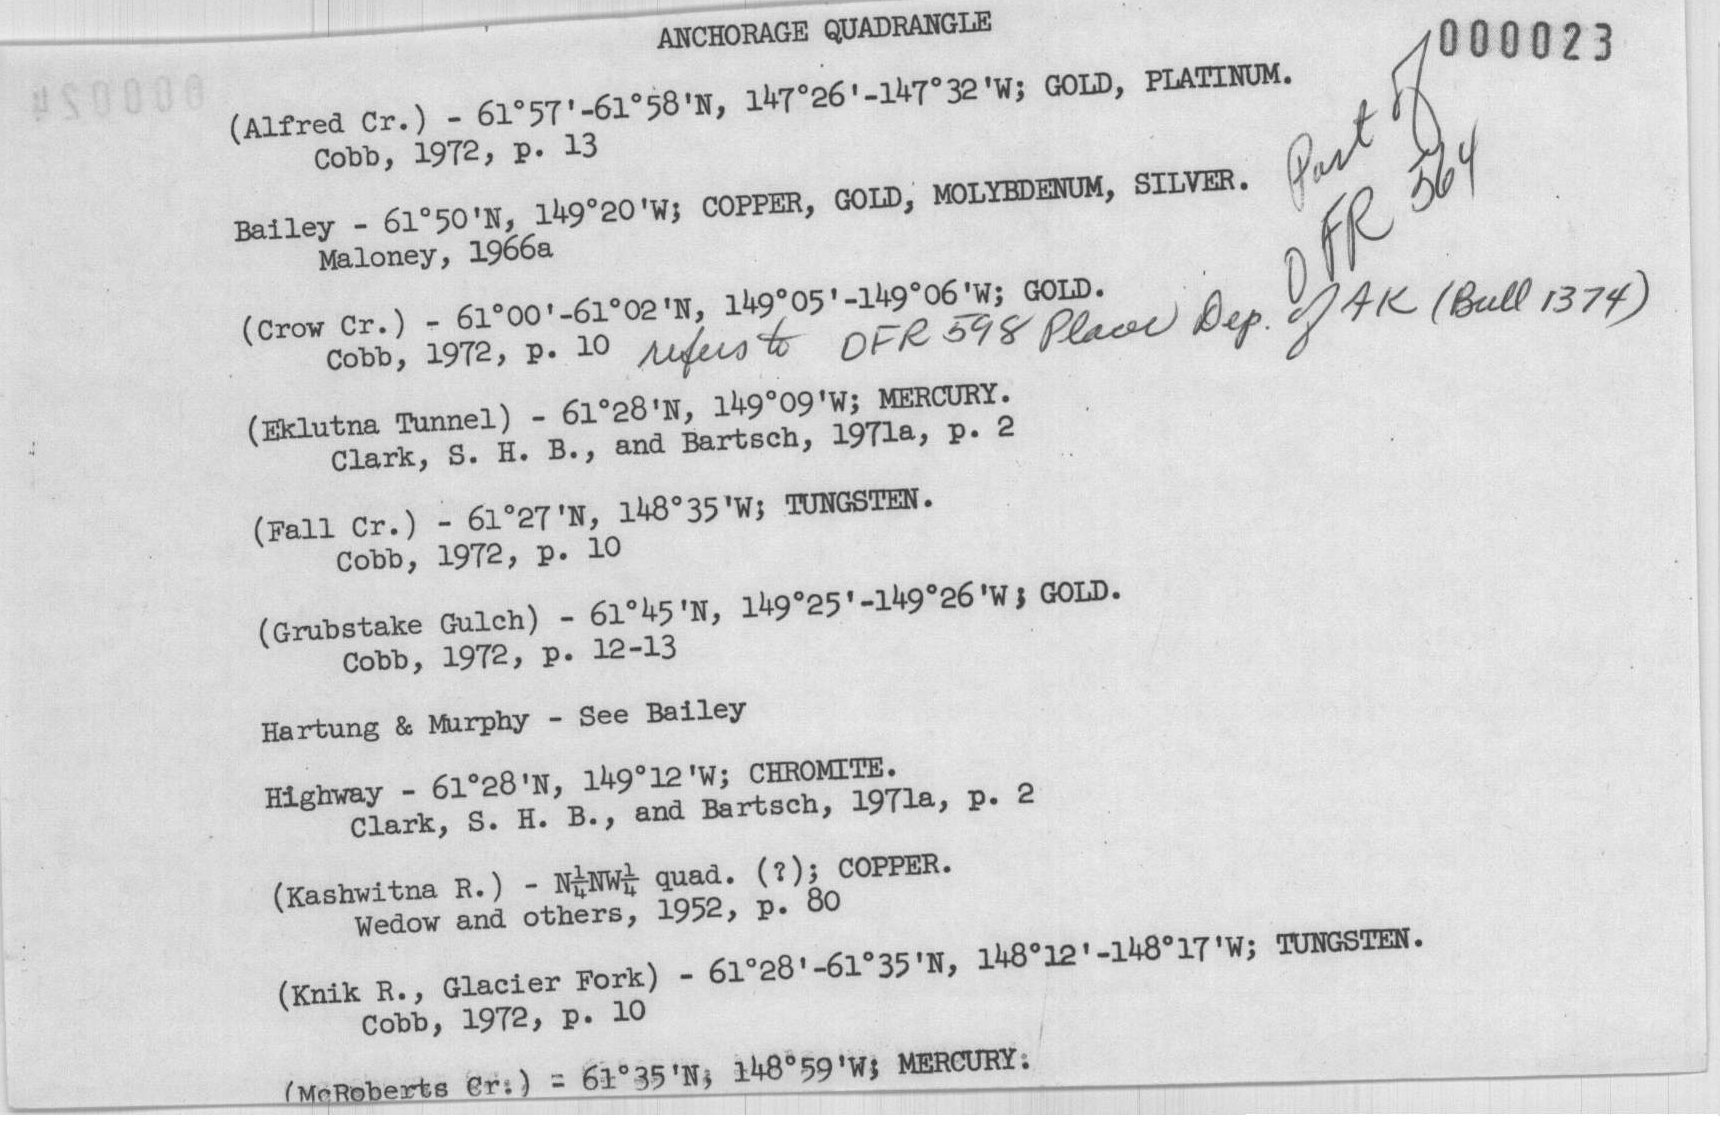 ANCHORAGE QUADRANGLE
000023
Part of
OFR 564
(Alfred Cr.) - 61°57'-61°58'N, 147°26'-147°32'W; GOLD, PLATINUM.
Cobb, 1972, p. 13
Bailey - 61°50'N, 149°20'W; COPPER, GOLD, MOLYBDENUM, SILVER.
Maloney, 1966a
(Crow Cr.) - 61°00'-61°02'N, 149°05'-149°06'W; GOLD.
Cobb, 1972, p. 10 refers to OFR 598 Placer Dep. of AK (Bull 1374)
(Eklutna Tunnel) - 61°28'N, 149°09'W; MERCURY.
Clark, S. H. B., and Bartsch, 1971a, p. 2
(Fall Cr.) - 61°27'N, 148°35'W; TUNGSTEN.
Cobb, 1972, p. 10
(Grubstake Gulch) - 61°45'N, 149°25'-149°26'W; GOLD.
Cobb, 1972, p. 12-13
Hartung & Murphy - See Bailey
Highway - 61°28'N, 149°12'W; CHROMITE.
Clark, S. H. B., and Bartsch, 1971a, p. 2
(Kashwitna R.) - N¼NW¼ quad. (?); COPPER.
Wedow and others, 1952, p. 80
(Knik R., Glacier Fork) - 61°28'-61°35'N, 148°12'-148°17'W; TUNGSTEN.
Cobb, 1972, p. 10
(McRoberts Cr.) - 61°35'N, 148°59'W; MERCURY.